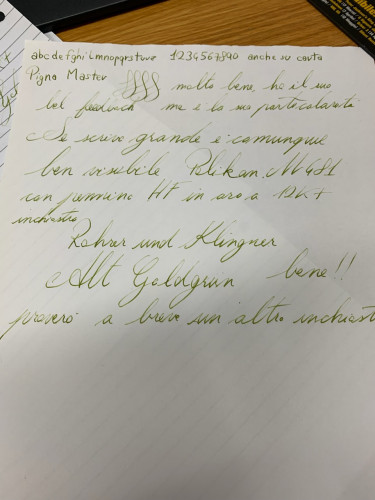 abcdefghilmnopqrstuvz 1234567890 anche su carta
Pigna Master SSSS molto bene, ha il suo
bel feedback ma è la sua particolarità
Se scrive grande è comunque
ben visibile Pelikan M481
con pennino HF in oro a 12K +
inchiostro
Rohrer und Klingner
Alt Goldgrun bene!!
proverò a breve un altro inchiost